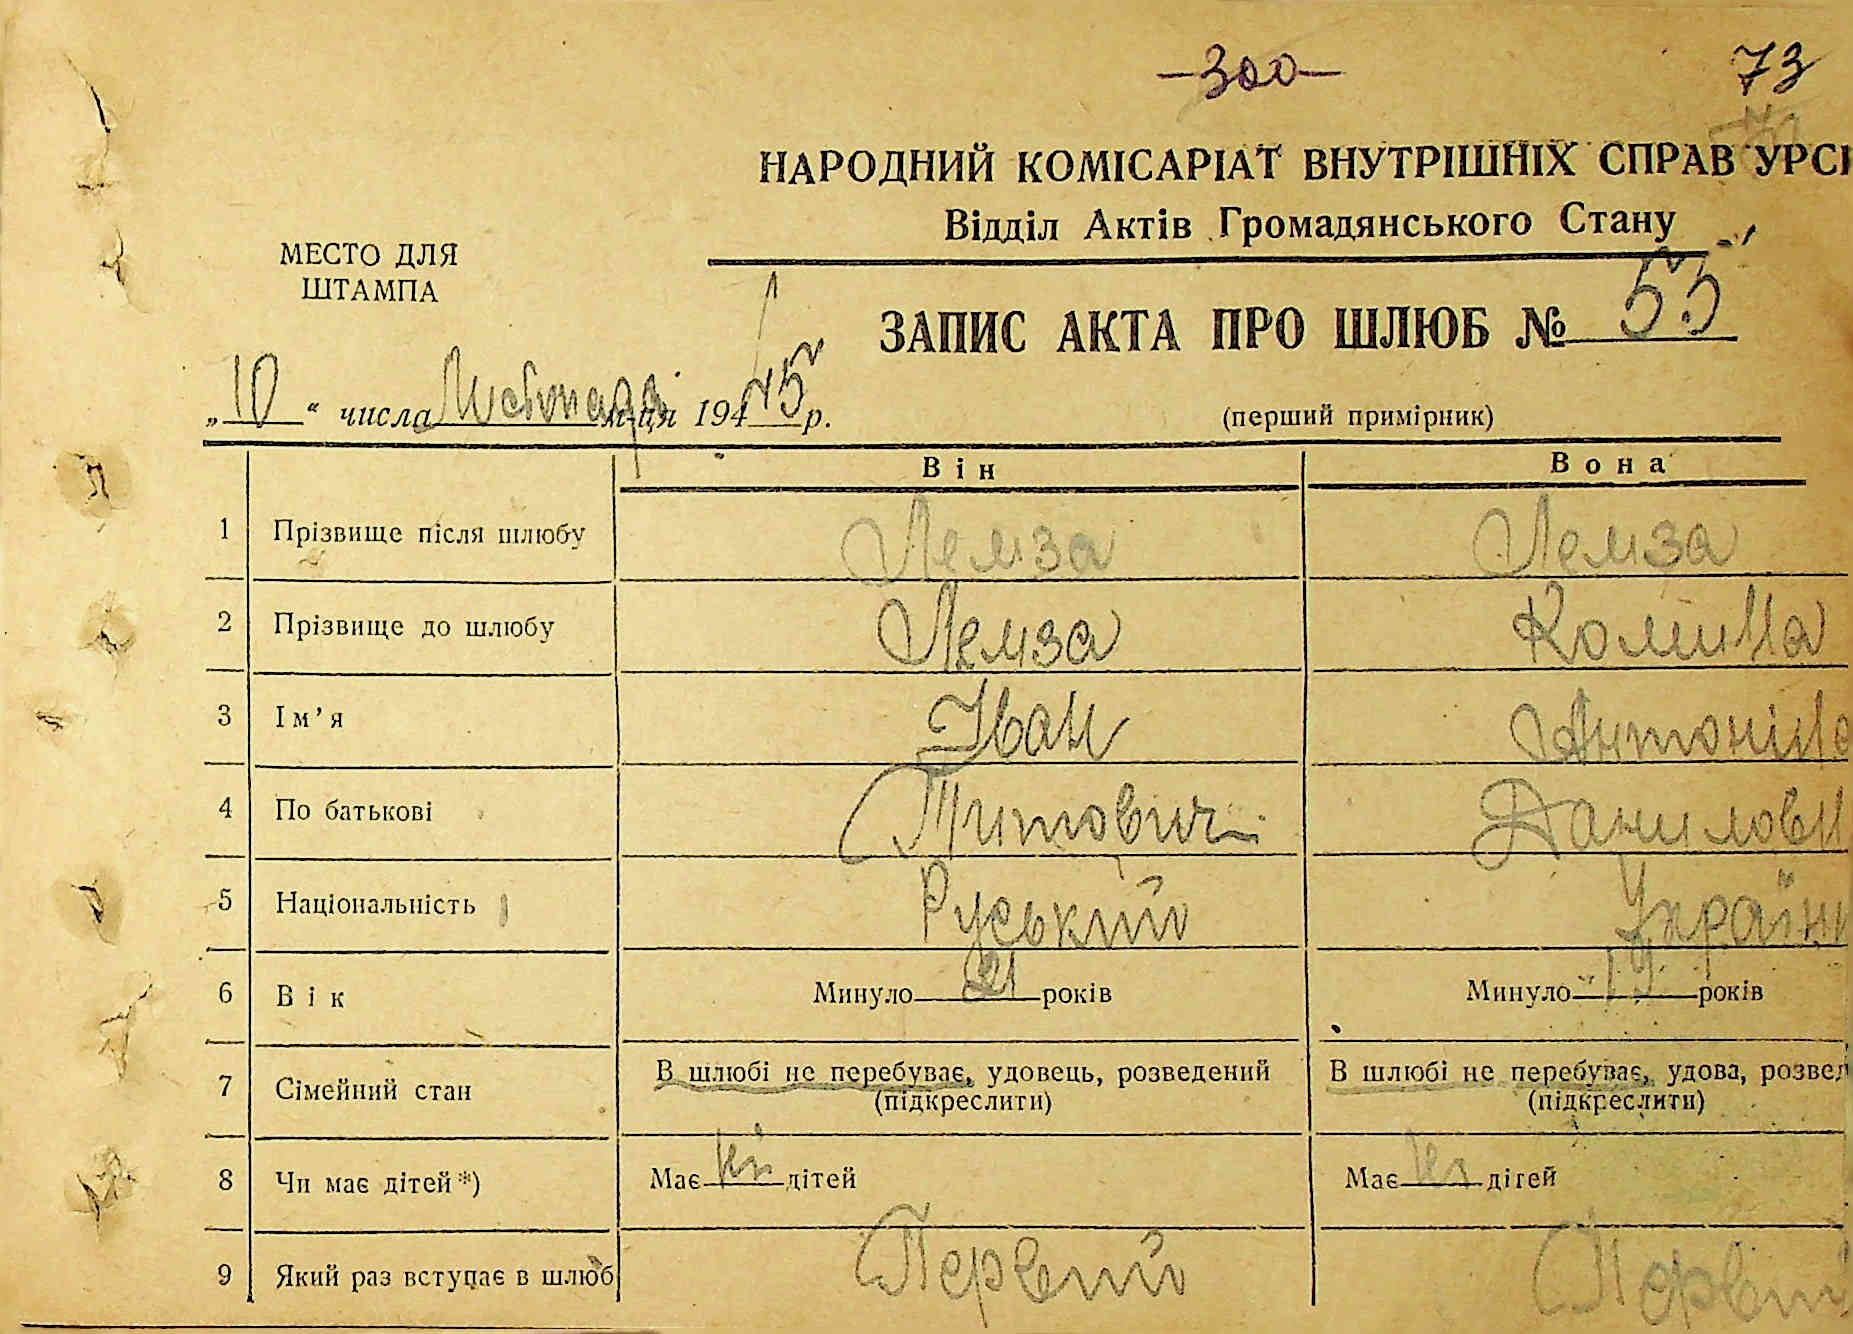 -300-
73
НАРОДНИЙ КОМІСАРІАТ ВНУТРІШНІХ СПРАВ УРСР
Відділ Актів Громадянського Стану
МЕСТО ДЛЯ
ШТАМПА
ЗАПИС АКТА ПРО ШЛЮБ № 55
„10“ числа Листопада м-ця 1945 р.
(перший примірник)
Він Вона
1 Прізвище після шлюбу Лемза Лемза
2 Прізвище до шлюбу Лемза
3 Ім’я Іван Антоніна
4 По батькові Титович Даниловн
5 Національність Руський Українк
6 Вік Минуло 21 років Минуло 19 років
7 Сімейний стан В шлюбі не перебуває, удовець, розведений В шлюбі не перебуває, удова, розвед
(підкреслити) (підкреслити)
8 Чи має дітей*) Має ні дітей Має ні дітей
9 Який раз вступає в шлюб Первий Первий